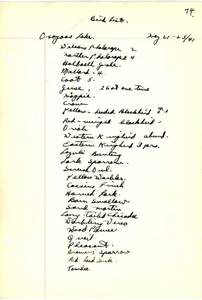 74
Bird List.
Osoyoos Lake. May 21-23/41
Wilson Phalarope 2
Northern Phalarope 4
Holboell Grebe
Mallard - 4
Coot 5.
Geese, 2 at one time
Magpie
Crow
Yellow-headed Blackbird
Red-winged blackbird
Oriole
Western Kingbird
Eastern Kingbird 3 prs.
Lazuli Bunting
Lark Sparrow
Screech Owl
Yellow Warbler
Cassins Finch
Horned Lark
Barn Swallow
Sand martin
Long Tailed Chickadee
Warbling Vireo
Wood Pewee
Quail
Pheasant
Brewers Sparrow
Duck
Towhee